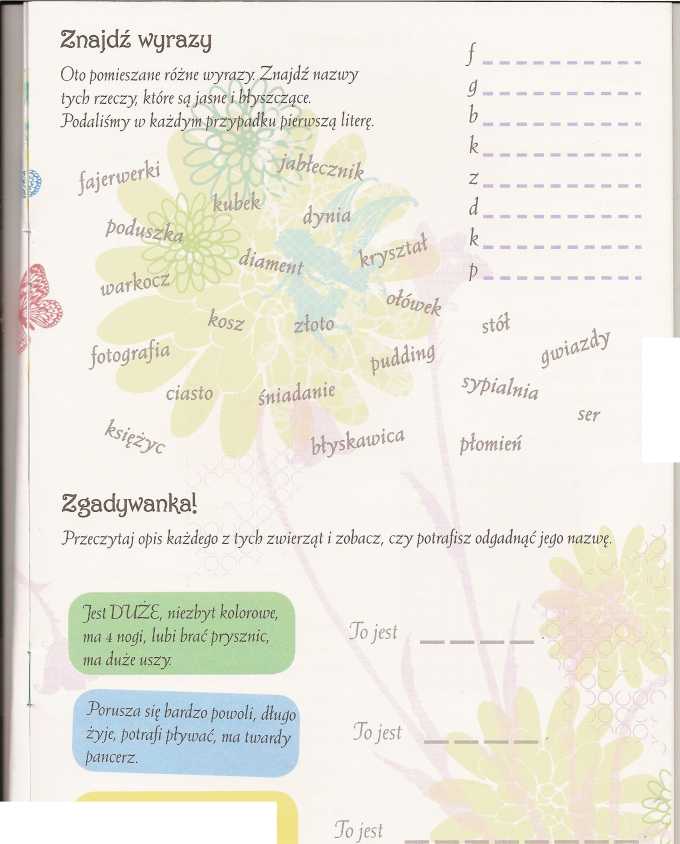 Znajdź wyrazy
Oto pomieszane różne wyrazy. Znajdź nazwy
tych rzeczy, które są jasne i błyszczące.
Podaliśmy w każdym przypadku pierwszą literę.
f
g
b
k
z
d
k
p
fajerwerki
jabłecznik
kubek
dynia
poduszka
diament
kryształ
warkocz
ołówek
kosz
złoto
stół
gwiazdy
fotografia
pudding
ciasto
śniadanie
sypialnia
ser
księżyc
błyskawica
płomień
Zgadywanka!
Przeczytaj opis każdego z tych zwierząt i zobacz, czy potrafisz odgadnąć jego nazwę.
Jest DUŻE, niezbyt kolorowe,
ma 4 nogi, lubi brać prysznic,
ma duże uszy.
To jest _ _ _ _ .
Porusza się bardzo powoli, długo
żyje, potrafi pływać, ma twardy
pancerz.
To jest _ _ _ _ .
To jest